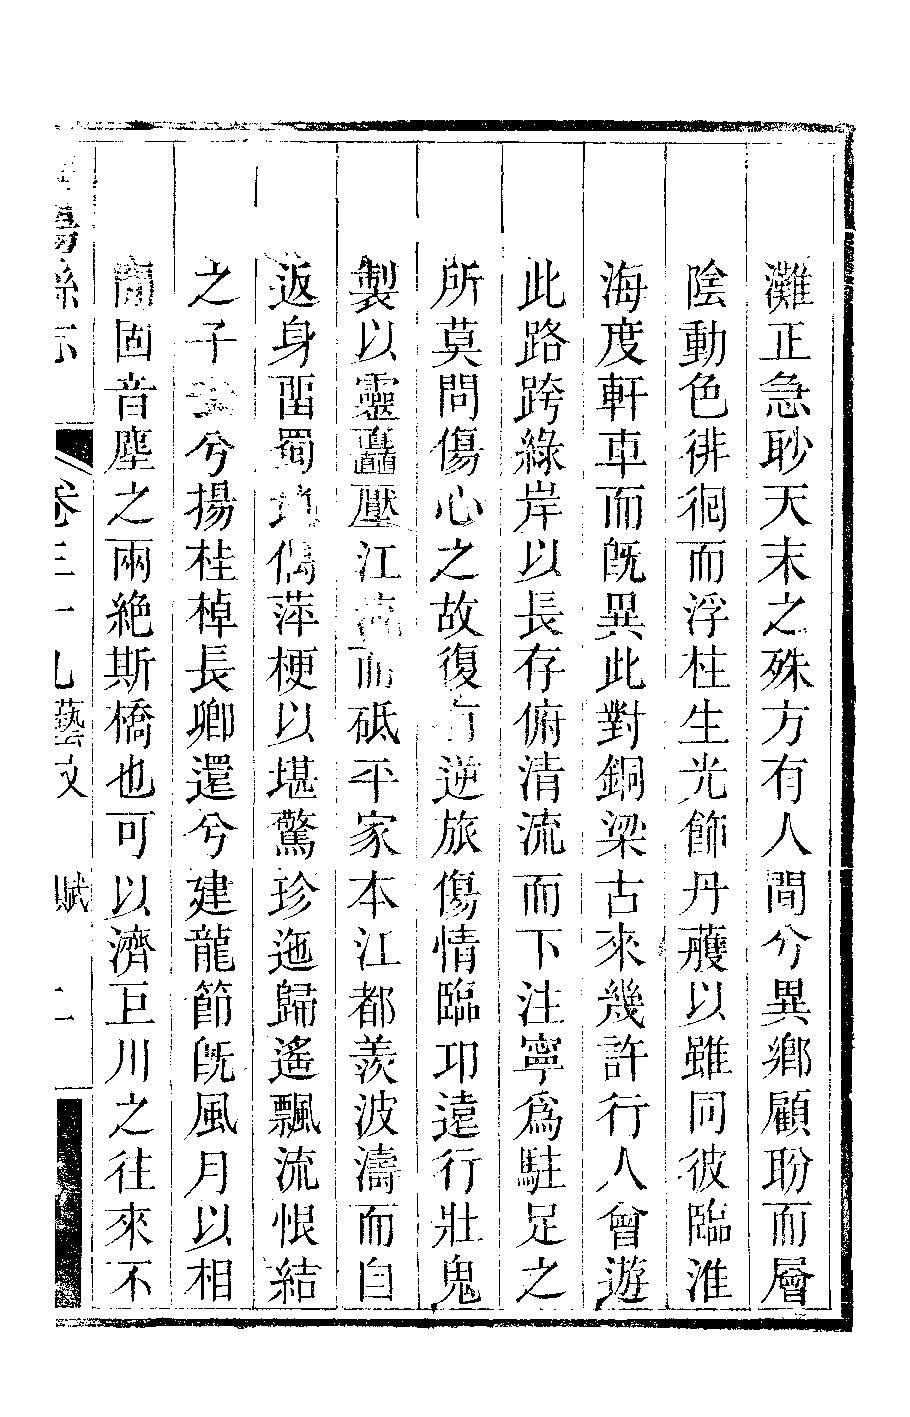 灘正急眇天末之殊方有人間兮異鄉顧盼而層
陰動色徘徊而浮柱生光飾丹雘以雖同彼臨淮
海度軒車而旣異此對銅梁古來幾許行人曾遊
此路跨綠岸以長存俯清流而下注寧爲駐足之
所莫問傷心之故復有逆旅傷情臨卭遠行壯鬼
製以靈鼉壓江流而砥平家本江都羨波濤而自
返身畱蜀地偶萍梗以堪驚珍迤歸遙飄流恨結
之子去兮揚桂棹長卿還兮建龍節旣風月以相
固音塵之兩絶斯橋也可以濟巨川之往來不
縣志 卷三十九 藝文 賦 二